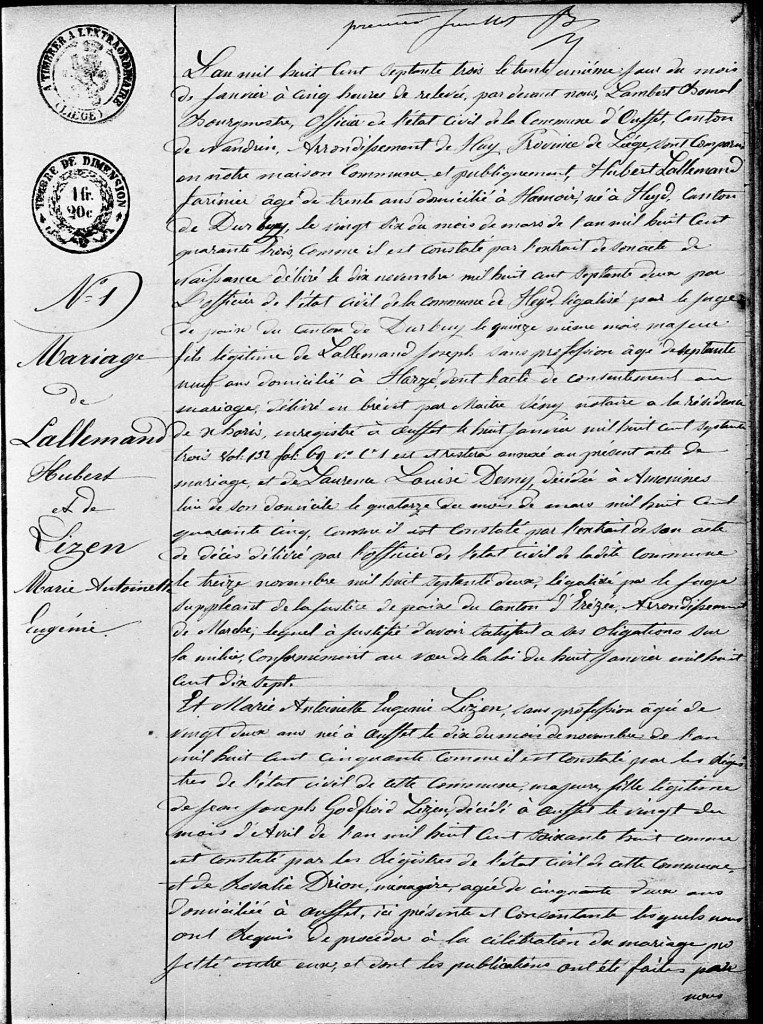 premier feuillet
A TIMBRER A L'EXTRAORDINAIRE
(LIÉGE)
TIMBRE DE DIMENSION
1 fr.
20 c
N° 1
Mariage
de
Lallemand
Hubert
et de
Lizen
Marie Antoinette
Eugénie.
L'an mil huit cent septante trois le trente unième jour du mois
de Janvier à cinq heures de relevée, par devant nous, Lambert
Bourgmestre, Officier de l'état Civil de la Commune d'Ouffet, Canton
de Nandrin, Arrondissement de Huy, Province de Liége sont comparus
en notre maison Commune et publiquement, Hubert Lallemand
farinier âgé de trente ans domicilié à Hamoir, né à Heyd, canton
de Durbuy, le vingt six du mois de mars de l'an mil huit cent
quarante trois, comme il est constaté par l'extrait de son acte de
naissance délivré le dix novembre mil huit cent septante deux par
l'officier de l'état civil de la commune de Heyd, légalisé par le Juge
de paix du Canton de Durbuy le quinze même mois, majeur
fils légitime de Lallemand Joseph sans profession âgé de septante
neuf ans domicilié à Harzé dont l'acte de consentement au
mariage, délivré en brevet par Maitre notaire a la résidence
de enregistré à Ouffet le huit Janvier mil huit cent septante
trois Vol. 132 fol. 69 est et restera annexé au présent acte de
mariage, et de Laurence Louise Demy, décédée à Amonines
lieu de son domicile le quatorze du mois de mars mil huit cent
quarante cinq, comme il est constaté par l'extrait de son acte
de décès délivré par l'officier de l'état civil de ladite Commune
le treize novembre mil huit septante deux, légalisé par le Juge
suppleant de la justice de paix du Canton d'Erézée, Arrondissement
de Marche; lequel à justifié d'avoir satisfait a ses obligations sur
la milice, Conformement au vœu de la loi du huit Janvier mil huit
cent dix sept.
Et Marie Antoinette Eugenie Lizen, sans profession agée de
vingt deux ans né à Ouffet le dix du mois de novembre de l'an
mil huit cent cinquante comme il est constaté par les Régis-
tres de l'état civil de cette Commune, majeure, fille légitime
de Jean Joseph Godfroid Lizen, décédé à Ouffet le vingt du
mois d'Avril de l'an mil huit Cent soixante huit comme
est constaté par les Régistres de l'état civil de cette Commune,
et de Rosalie Drion, ménagère, agée de cinquante deux ans
domiciliée à Ouffet, ici présente et Consentante lesquels nous
ont Requis de procéder à la célébration du mariage pro
jetté entre eux, et dont les publications ont été faites par
nous